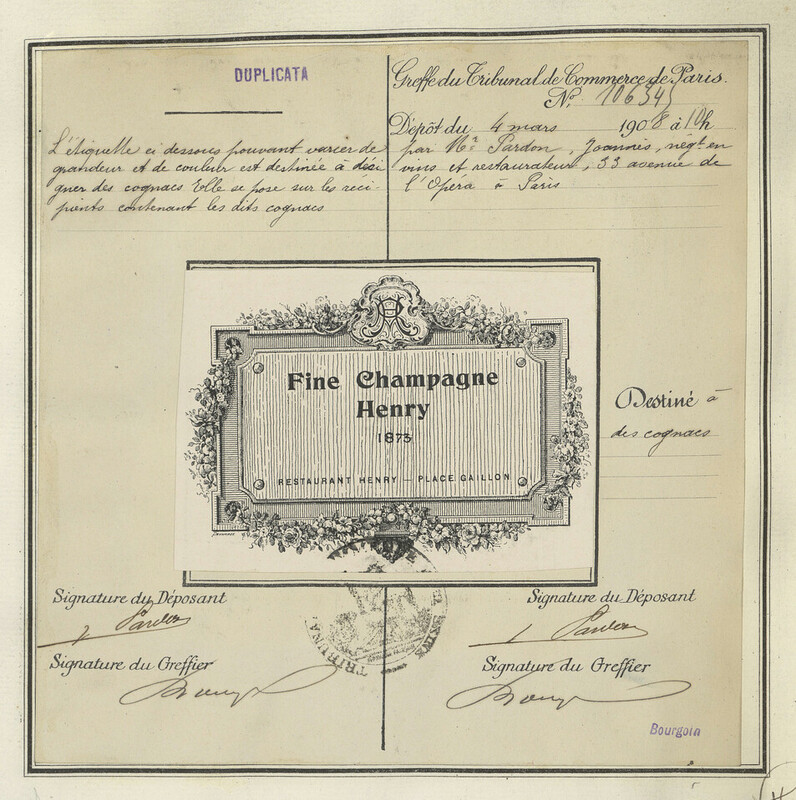 DUPLICATA
L'étiquette ci dessous pouvant varier de
grandeur et de couleur est destinée à dési
gner des cognacs Elle se pose sur les reci-
pients contenant les dits cognacs
Greffe du Tribunal de Commerce de Paris.
N°. 106345
Dépôt du 4 mars 1908 à 10h
par Mr. Pardon, Joannès, négt en
vins et restaurateur, 33 avenue de
l'Opéra à Paris
Fine Champagne
Henry
1873
RESTAURANT HENRY — PLACE GAILLON
Destiné à
des cognacs
Signature du Déposant
J Pardon
Signature du Greffier
Signature du Déposant
J Pardon
Signature du Greffier
Bourgoin
TRIBUNAL